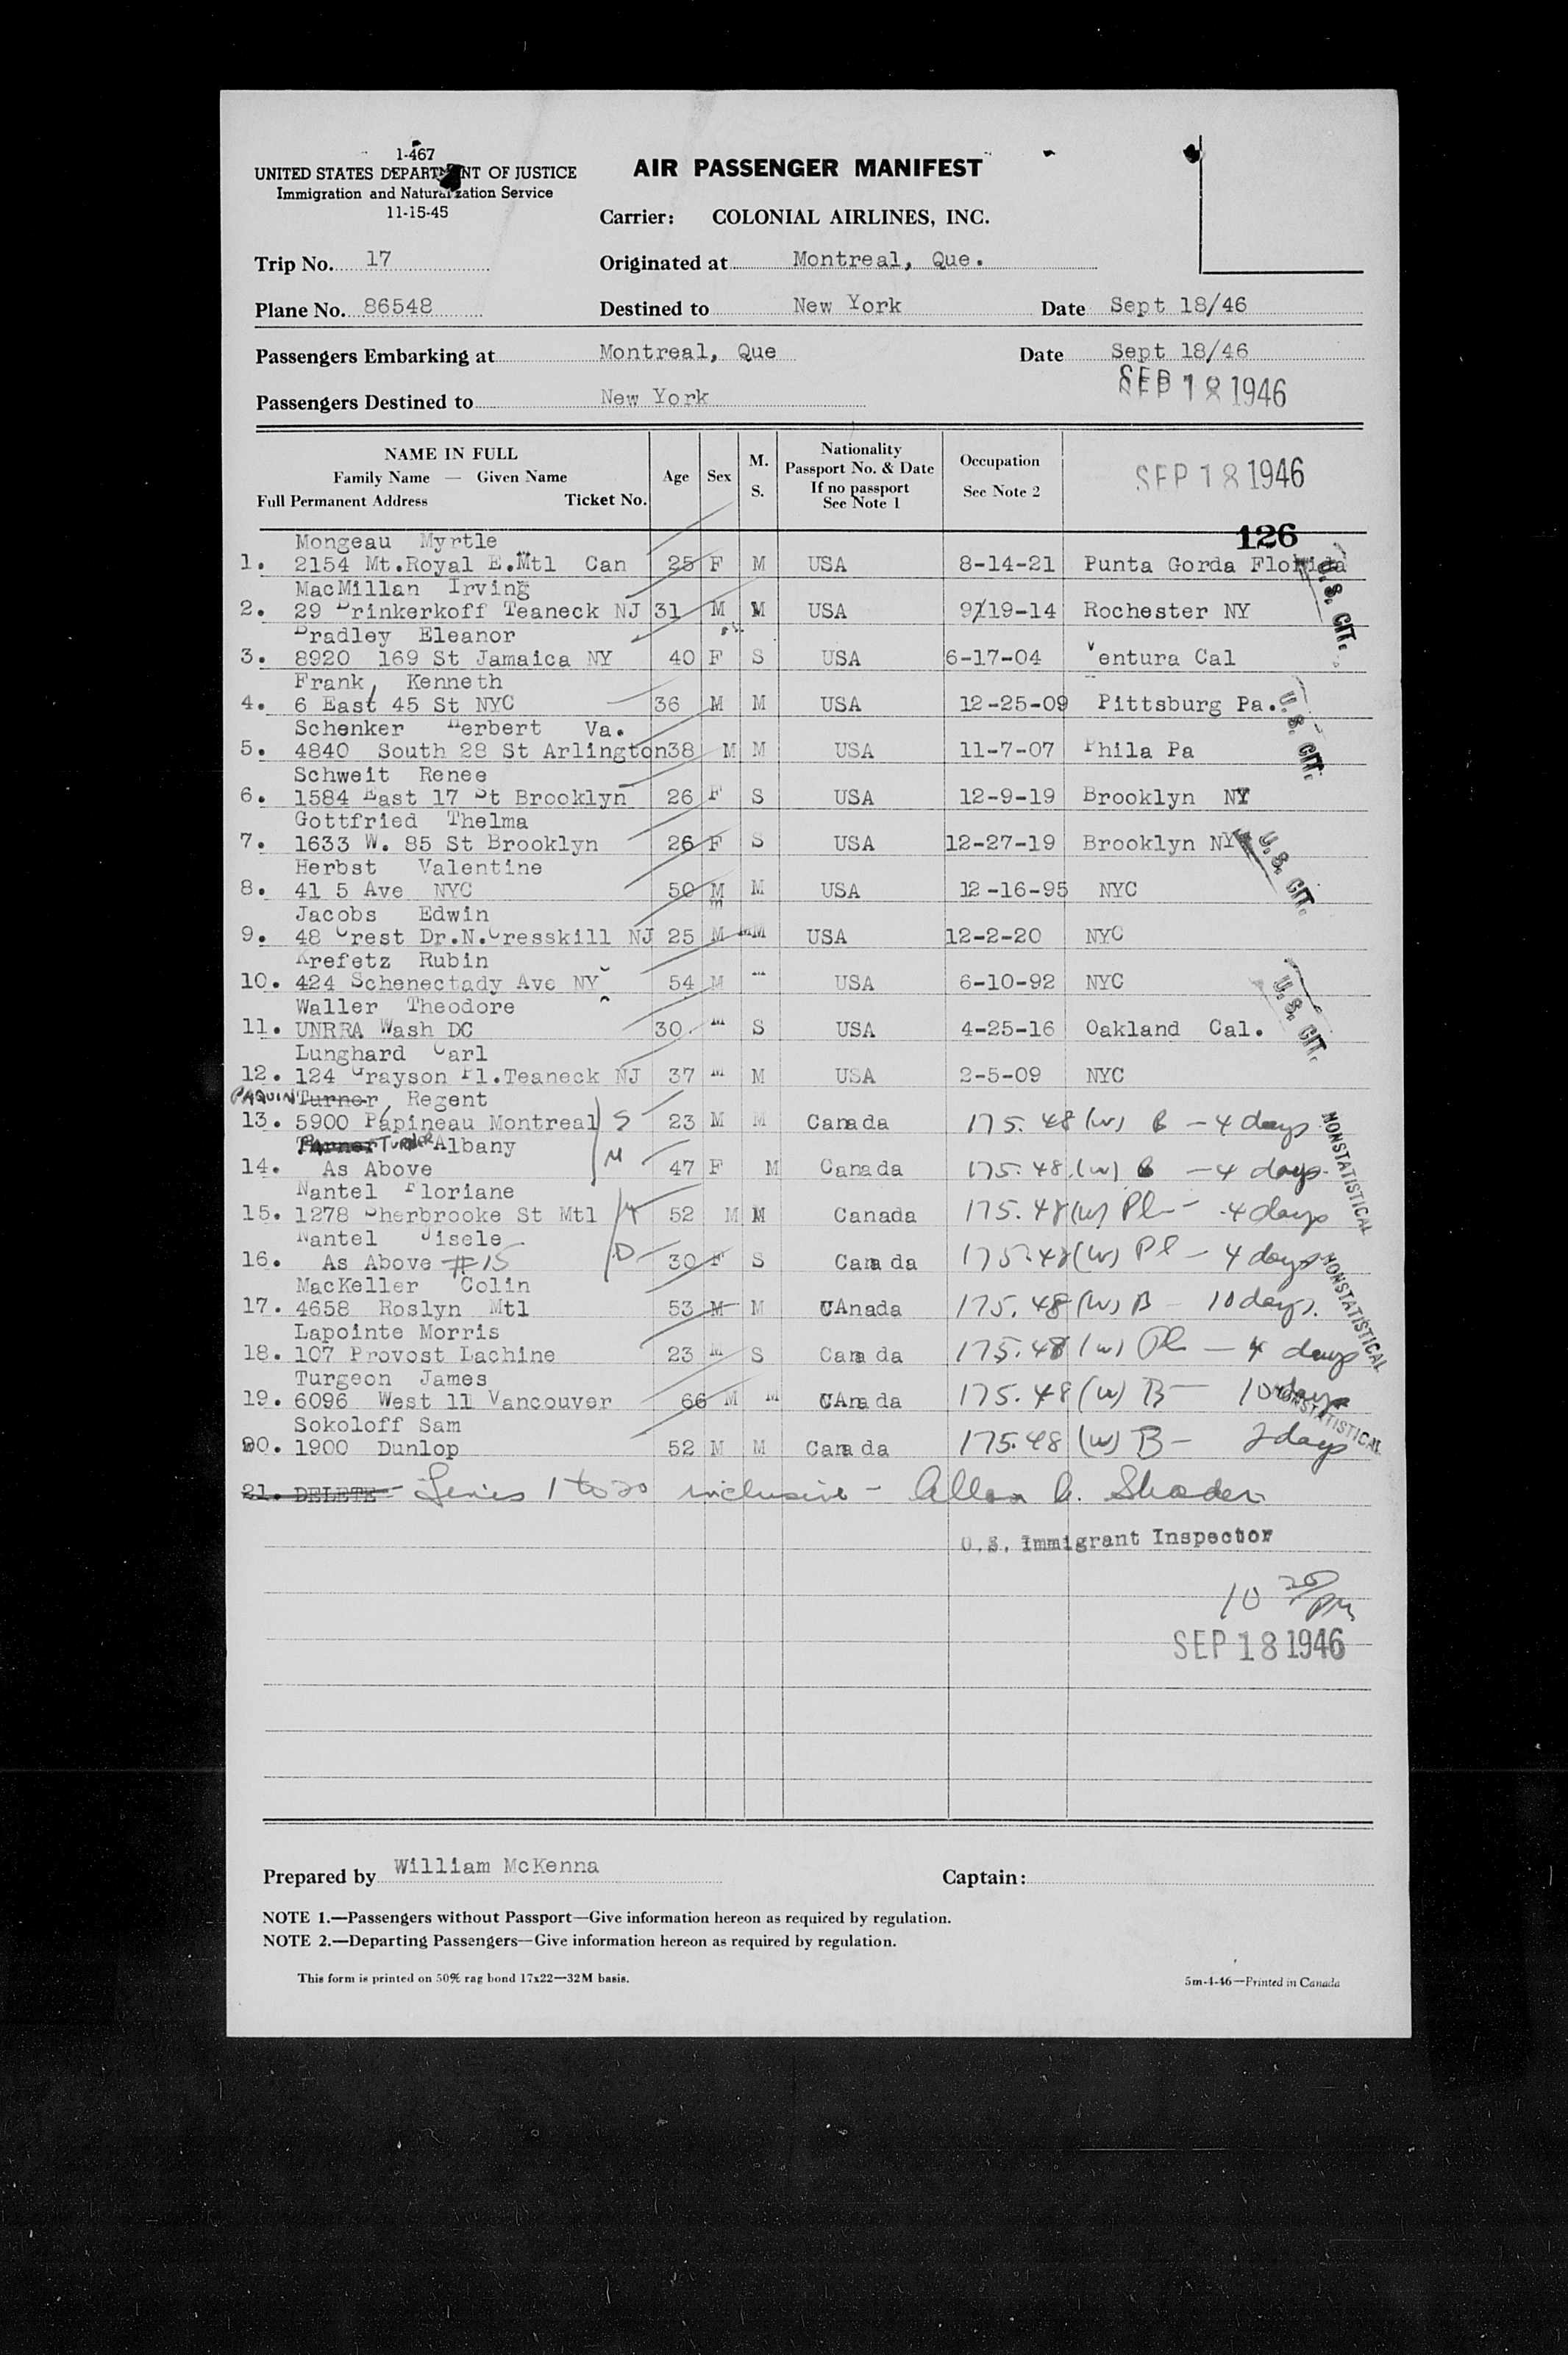 1-467
UNITED STATES DEPARTMENT OF JUSTICE
Immigration and Naturalization Service
11-15-45
AIR PASSENGER MANIFEST
Carrier: COLONIAL AIRLINES, INC.
Trip No. 17 Originated at Montreal, Que.
Plane No. 86548 Destined to New York Date Sept 18/46
Passengers Embarking at Montreal, Que Date Sept 18/46
SEP 18 1946
Passengers Destined to New York
NAME IN FULL
Family Name — Given Name
Full Permanent Address Ticket No.
Age Sex M. S.
Nationality
Passport No. & Date
If no passport
See Note 1
Occupation
See Note 2
SEP 18 1946
126
Mongeau Myrtle
1. 2154 Mt.Royal E.Mtl Can 25 F M USA 8-14-21 Punta Gorda Florida
U.S. CIT.
MacMillan Irving
2. 29 Brinkerkoff Teaneck NJ 31 M M USA 9/19-14 Rochester NY
Bradley Eleanor
3. 8920 169 St Jamaica NY 40 F S USA 6-17-04 Ventura Cal
Frank, Kenneth
4. 6 East 45 St NYC 36 M M USA 12-25-09 Pittsburg Pa.
U.S. CIT.
Schenker Herbert Va.
5. 4840 South 28 St Arlington 38 M M USA 11-7-07 Phila Pa
Schweit Renee
6. 1584 East 17 St Brooklyn 26 F S USA 12-9-19 Brooklyn NY
Gottfried Thelma
7. 1633 W. 85 St Brooklyn 26 F S USA 12-27-19 Brooklyn NY
U.S. CIT.
Herbst Valentine
8. 41 5 Ave NYC 50 M M USA 12-16-95 NYC
Jacobs Edwin
9. 48 Crest Dr.N.Cresskill NJ 25 M MM USA 12-2-20 NYC
Krefetz Rubin
10. 424 Schenectady Ave NY 54 M M USA 6-10-92 NYC
Waller Theodore
U.S. CIT.
11. UNRRA Wash DC 30 M S USA 4-25-16 Oakland Cal.
Lunghard Carl
12. 124 Grayson Pl.Teaneck NJ 37 M M USA 2-5-09 NYC
PAQUIN Turner, Regent
13. 5900 Papineau Montreal S 23 M M Canada 175.48 (W) B - 4 days
NONSTATISTICAL
TURNER Albany
14. As Above M 47 F M Canada 175.48 (W) B - 4 days
Nantel Floriane
15. 1278 Sherbrooke St Mtl 52 M M Canada 175.48 (W) Pl - 4 days
Nantel Jisele
16. As Above #15 D 30 F S Canada 175.48 (W) Pl - 4 days
NONSTATISTICAL
MacKeller Colin
17. 4658 Roslyn Mtl 53 M M CAnada 175.48 (W) B - 10 days.
Lapointe Morris
18. 107 Provost Lachine 23 M S Canada 175.48 (W) Pl - 4 days
Turgeon James
19. 6096 West 11 Vancouver 66 M M CAnada 175.48 (W) B - 10 days
NONSTATISTICAL
Sokoloff Sam
20. 1900 Dunlop 52 M M Canada 175.48 (W) B - 2 days
21. DELETE Lines 1 to 20 inclusive - Allan
U.S. Immigrant Inspector
10 PM
SEP 18 1946
Prepared by William McKenna Captain:
NOTE 1.—Passengers without Passport—Give information hereon as required by regulation.
NOTE 2.—Departing Passengers—Give information hereon as required by regulation.
This form is printed on 50% rag bond 17x22—32M basis. 5m-4-46—Printed in Canada